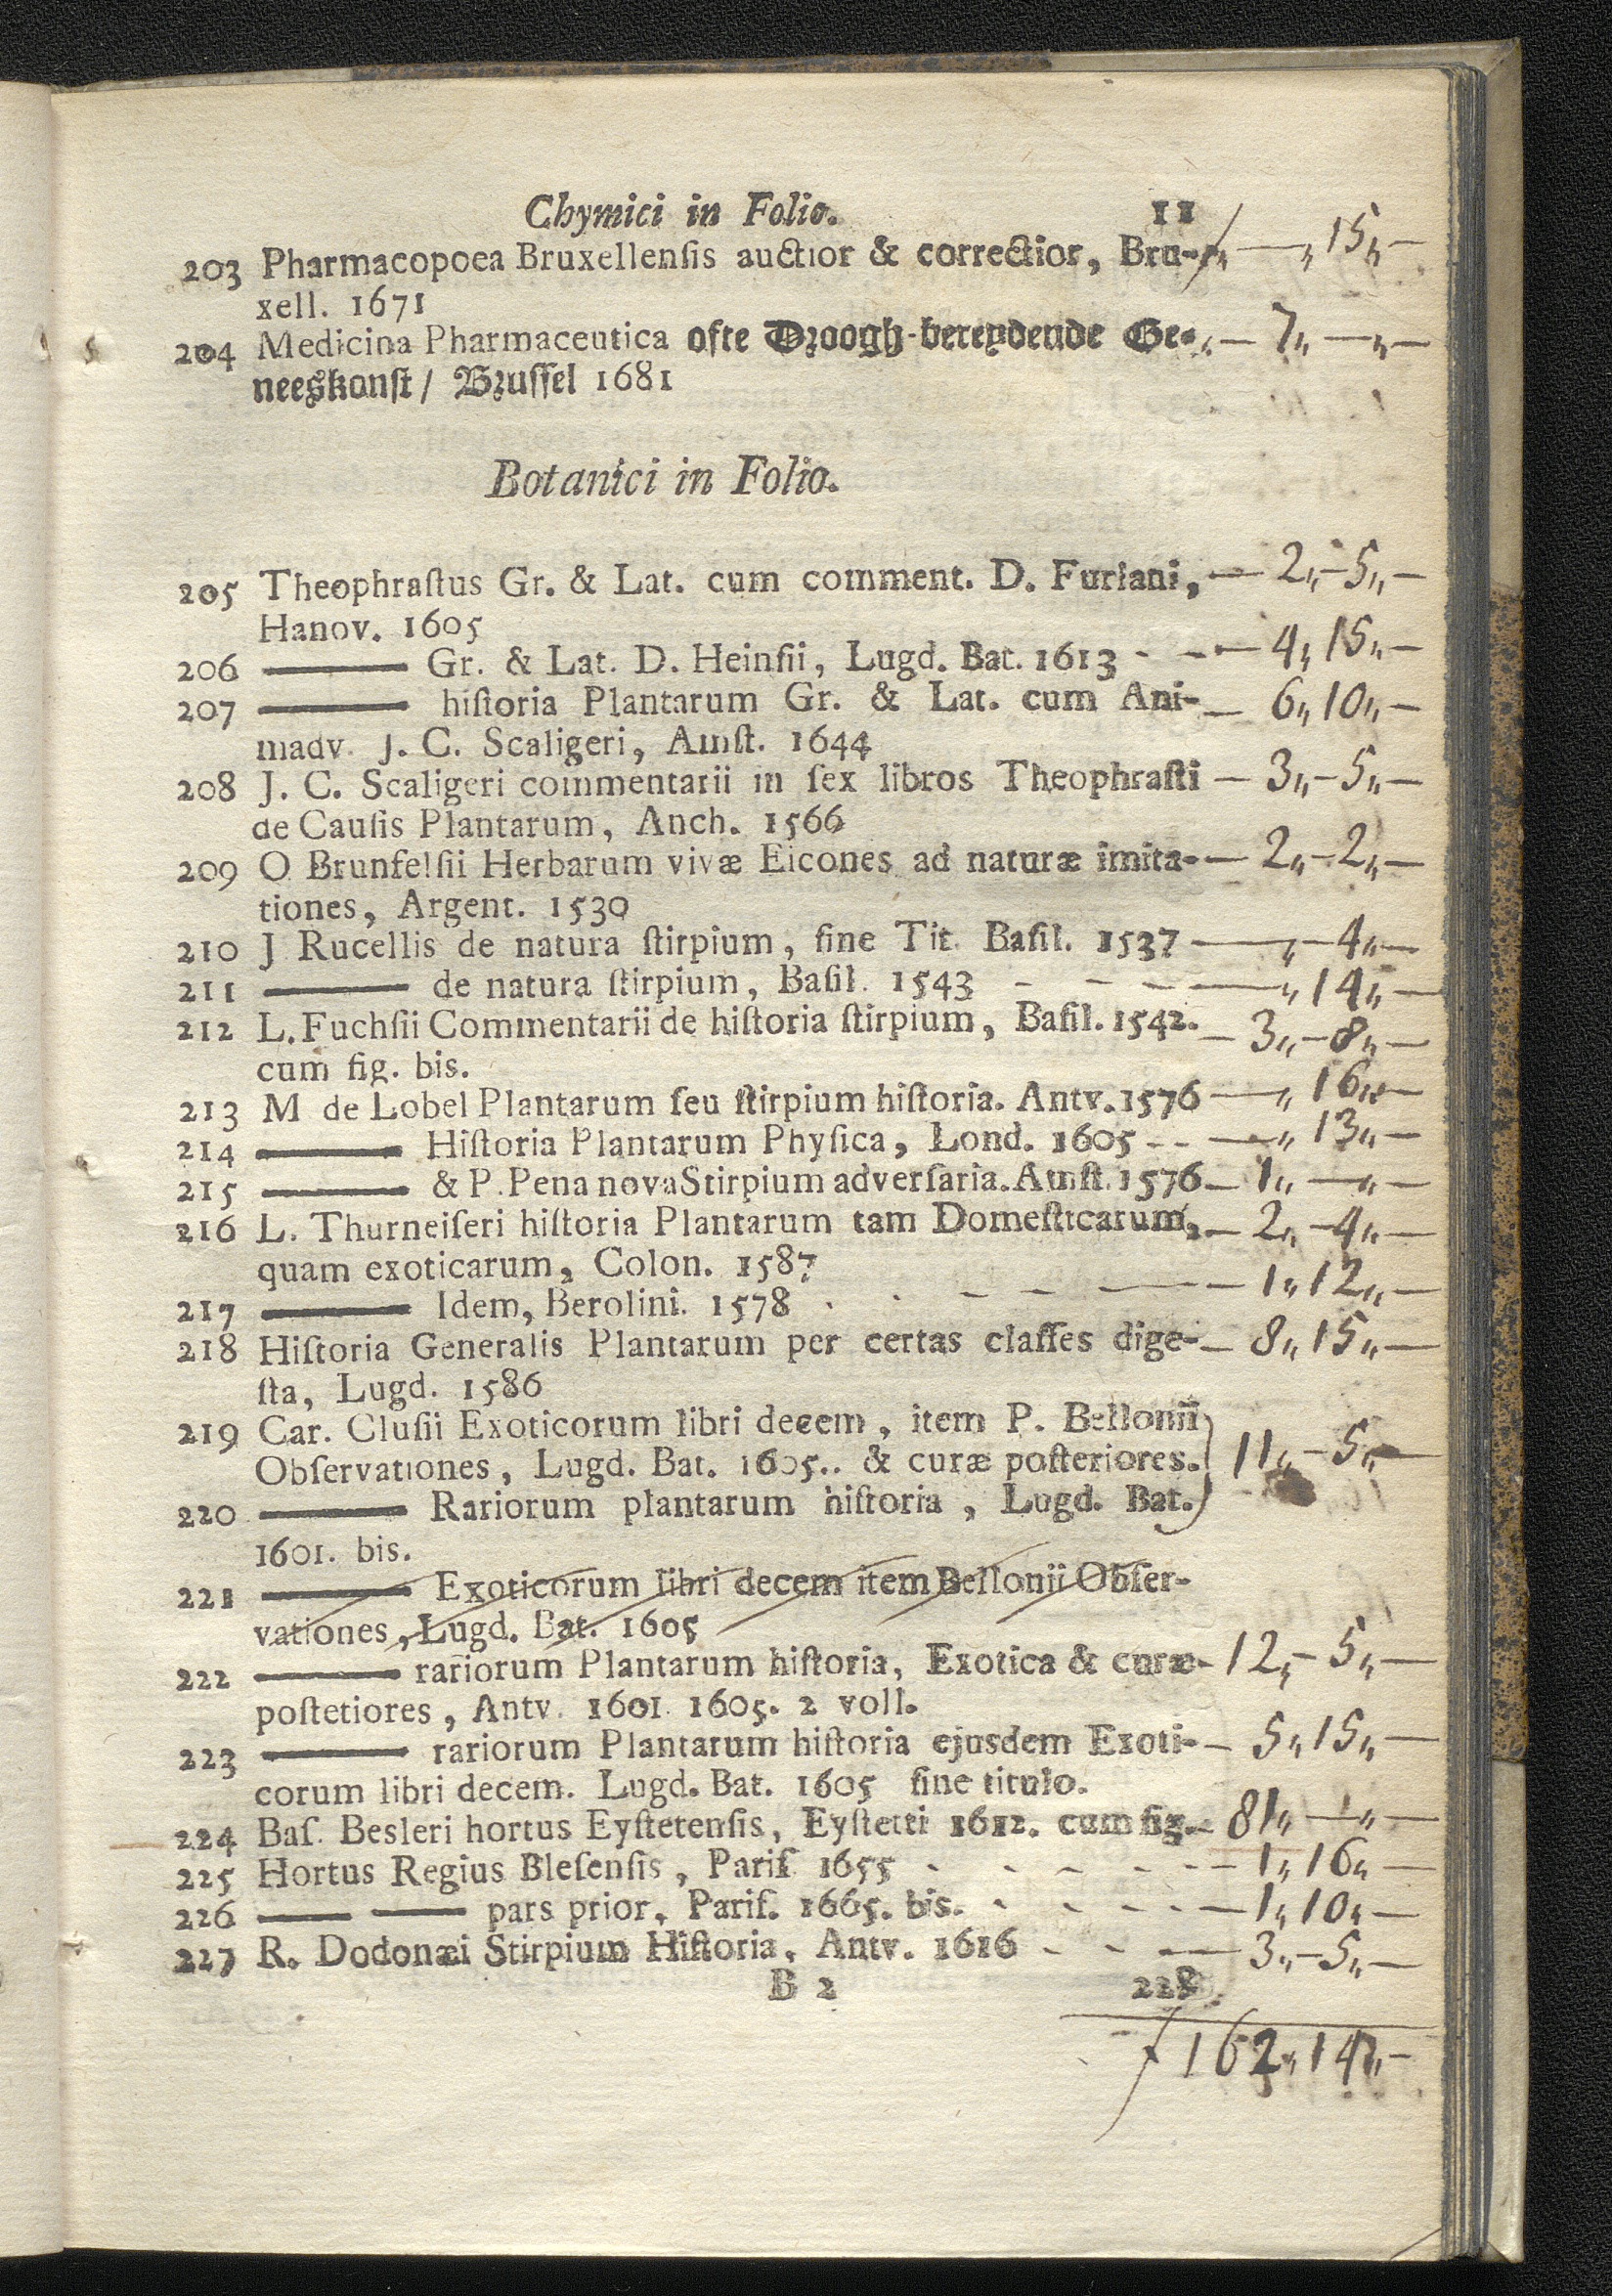 Chymici in Folio. 11
203 Pharmacopoea Bruxellensis auctior & correctior, Bru- ƒ „ — „ 15 „ —
xell. 1671
204 Medicina Pharmaceutica ofte Droogh-bereydende Ge- „ — 7 „ — „ —
neeskonst / Brussel 1681
Botanici in Folio.
205 Theophrastus Gr. & Lat. cum comment. D. Furlani, — 2 „ - 5 „ —
Hanov. 1605
206 ——— Gr. & Lat. D. Heinsii, Lugd. Bat. 1613 - - — 4 „ 15 „ —
207 ——— historia Plantarum Gr. & Lat. cum Ani- — 6 „ 10 „ —
madv. J. C. Scaligeri, Amst. 1644
208 J. C. Scaligeri commentarii in sex libros Theophrasti — 3 „ - 5 „ —
de Causis Plantarum, Anch. 1566
209 O Brunfelsii Herbarum vivæ Eicones ad naturæ imita- — 2 „ - 2 „ —
tiones, Argent. 1530
210 J Rucellis de natura stirpium, sine Tit. Basil. 1537 — „ - 4 „ —
211 ——— de natura stirpium, Basil. 1543 - - - — „ 14 „ —
212 L. Fuchsii Commentarii de historia stirpium, Basil. 1542. — 3 „ - 8 „ —
cum fig. bis.
213 M de Lobel Plantarum seu stirpium historia. Antv. 1576 — „ 16 „ —
214 ——— Historia Plantarum Physica, Lond. 1605 - - — „ 13 „ —
215 ——— & P. Pena nova Stirpium adversaria. Amst. 1576 — 1 „ — „ —
216 L. Thurneiseri historia Plantarum tam Domesticarum, — 2 „ - 4 „ —
quam exoticarum, Colon. 1587
217 ——— Idem, Berolini. 1578 - - - - — 1 „ 12 „ —
218 Historia Generalis Plantarum per certas classes dige- — 8 „ 15 „ —
sta, Lugd. 1586
219 Car. Clusii Exoticorum libri decem, item P. Bellonii
Observationes, Lugd. Bat. 1605.. & curæ posteriores. 11 „ - 5 „ —
220 ——— Rariorum plantarum historia, Lugd. Bat.
1601. bis.
221 ——— Exoticorum libri decem item Bellonii Obser-
vationes, Lugd. Bat. 1605
222 ——— rariorum Plantarum historia, Exotica & curæ - 12 „ - 5 „ —
postetiores, Antv. 1601. 1605. 2 voll.
223 ——— rariorum Plantarum historia ejusdem Exoti- — 5 „ 15 „ —
corum libri decem. Lugd. Bat. 1605 sine titulo.
224 Bas. Besleri hortus Eystetensis, Eystetti 1612. cum fig. - 81 „ — „ —
225 Hortus Regius Blesensis, Paris 1655 - - - - — 1 „ 16 „ —
226 —— —— pars prior, Paris. 1665. bis. - - - - — 1 „ 10 „ —
227 R. Dodonæi Stirpium Historia, Antv. 1616 - - — 3 „ - 5 „ —
B 2 228
ƒ 162 „ 14 „ —